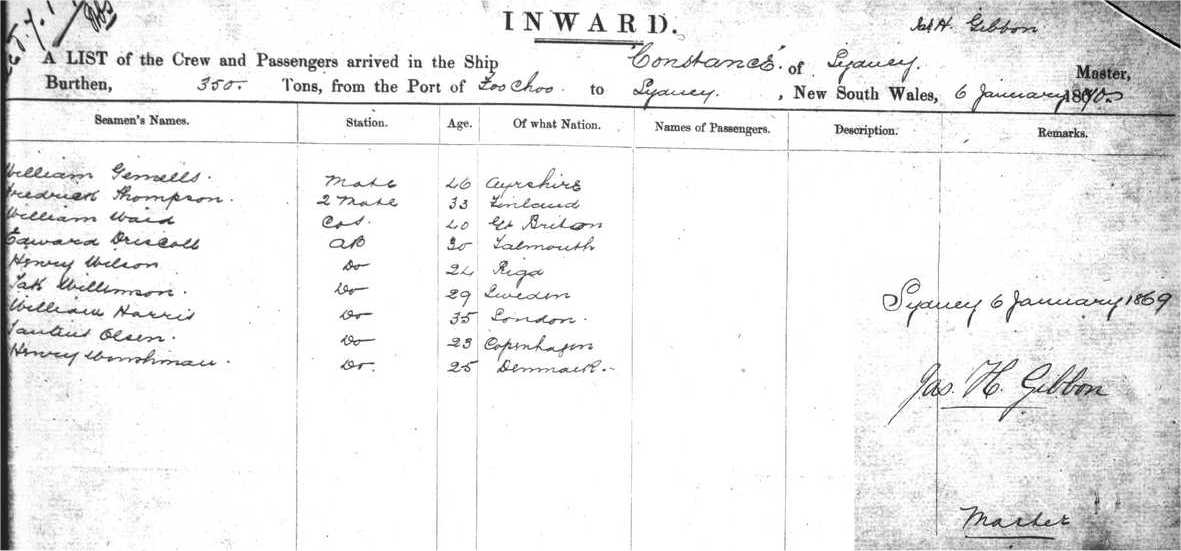 INWARD.
Jas H. Gibbon
A LIST of the Crew and Passengers arrived in the Ship "Constance" of Sydney. Master,
Burthen, 350. Tons, from the Port of Foo Choo. to Sydney. , New South Wales, 6 January 1870.
Seamen's Names. Station. Age. Of what Nation. Names of Passengers. Description. Remarks.
William Gemells. Mate 46 Ayrshire
Fredrick Thompson. 2 Mate 33 Finland
William Waid Cos. 40 Gt Britson
Edward Driscoll AB 30 Falmouth
Henry Wilson Do 24 Riga
Jak Willimson. Do 29 Sweden
William Harris Do 35 London.
Olsen. Do 23 Copenhagen
Henry Do. 25 Denmark.
Sydney 6 January 1869
Jas. H. Gibbon
Master